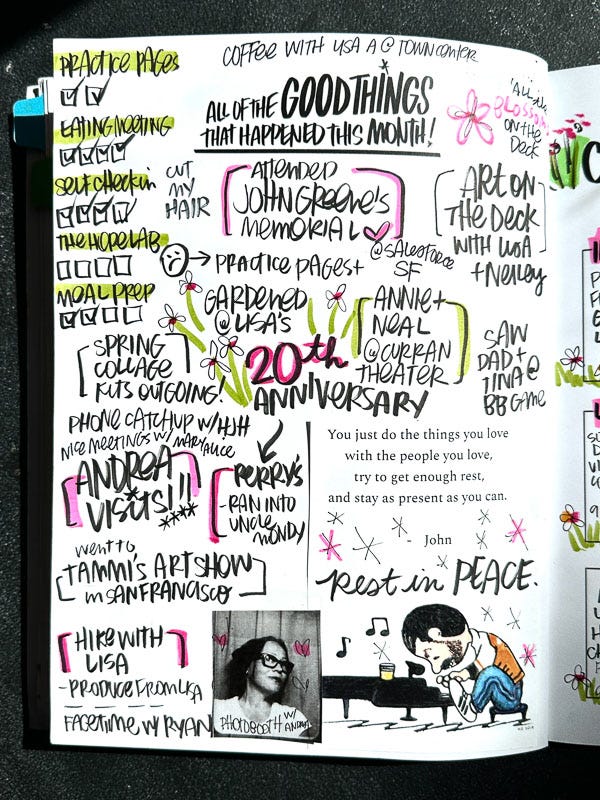 PRACTICE PAGES
EATING MEETING
SELF CHECK in
THE HOPE LAB
MEAL PREP
COFFEE WITH LISA @ TOWN CENTER
ALL OF THE GOOD THINGS
THAT HAPPENED THIS MONTH!
BLOSSOMS
ON THE
DECK
CUT
MY
HAIR
ATTENDED
JOHN GREENE'S
MEMORIAL
@ SALESFORCE
SF
ART ON
THE DECK
WITH LISA
+ NELLEY
PRACTICE PAGES +
GARDENED
@ LISA'S
ANNIE +
NEAL
@ CURRAN
THEATER
SAW
DAD +
TINA @
BB GAME
SPRING
COLLAGE
KITS OUTGOING!
20th
ANNIVERSARY
PHONE CATCHUP W/ HJH
NICE MEETINGS W/ MARY ALICE
ANDREA
VISITS!!!
PERRY'S
- RAN INTO
UNCLE
MONDY
You just do the things you love
with the people you love,
try to get enough rest,
and stay as present as you can.
- John
Rest in PEACE.
WENT TO
TAMMI'S ART SHOW
in SAN FRANCISCO
HIKE WITH
LISA
- PRODUCE FROM LISA
FACETIME W/ RYAN
PHOTOBOOTH W/
ANDREA